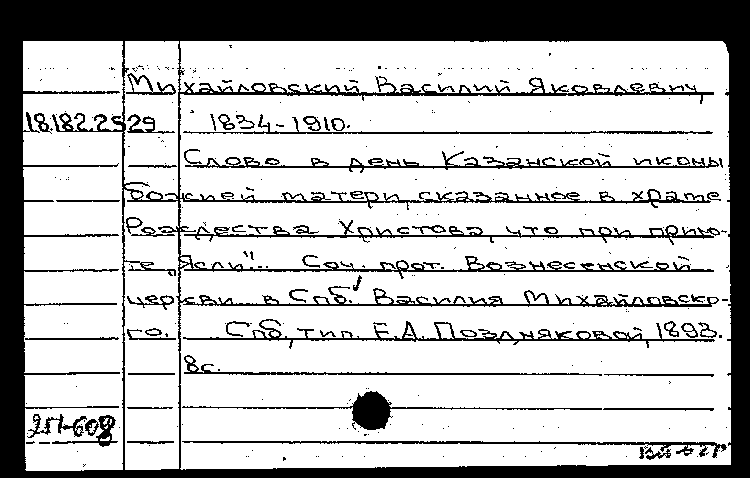 Михайловский, Василий Яковлевич,
18.182.2.529 1834-1910.
Слово в день Казанской иконы
божией матери, сказанное в храме
Рождества Христова, что при прию-
те „Ясли"... Соч. прот. Вознесенской
церкви в Спб. Василия Михайловско-
го. Спб, тип. Е.А. Поздняковой, 1893.
8с.
251-608